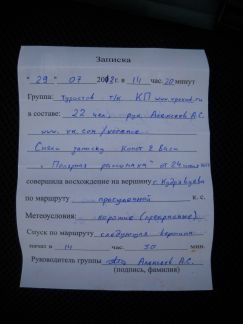 Записка
"29" 07 2012 г. в 14 час. 20 минут
Группа: Туристов т/к КП www.
в составе: 22 чел, рук. Алексеев А.С.
www.vk.com/
Сняли записку
"Полярная" от 24
совершила восхождение на вершину г. Кудрявцева
по маршруту прогулочной к. с.
Метеоусловия: хорошие (прекрасные).
Спуск по маршруту следующая вершина
начат в 14 час. 30 мин.
Руководитель группы Алексеев А.С.
(подпись, фамилия)